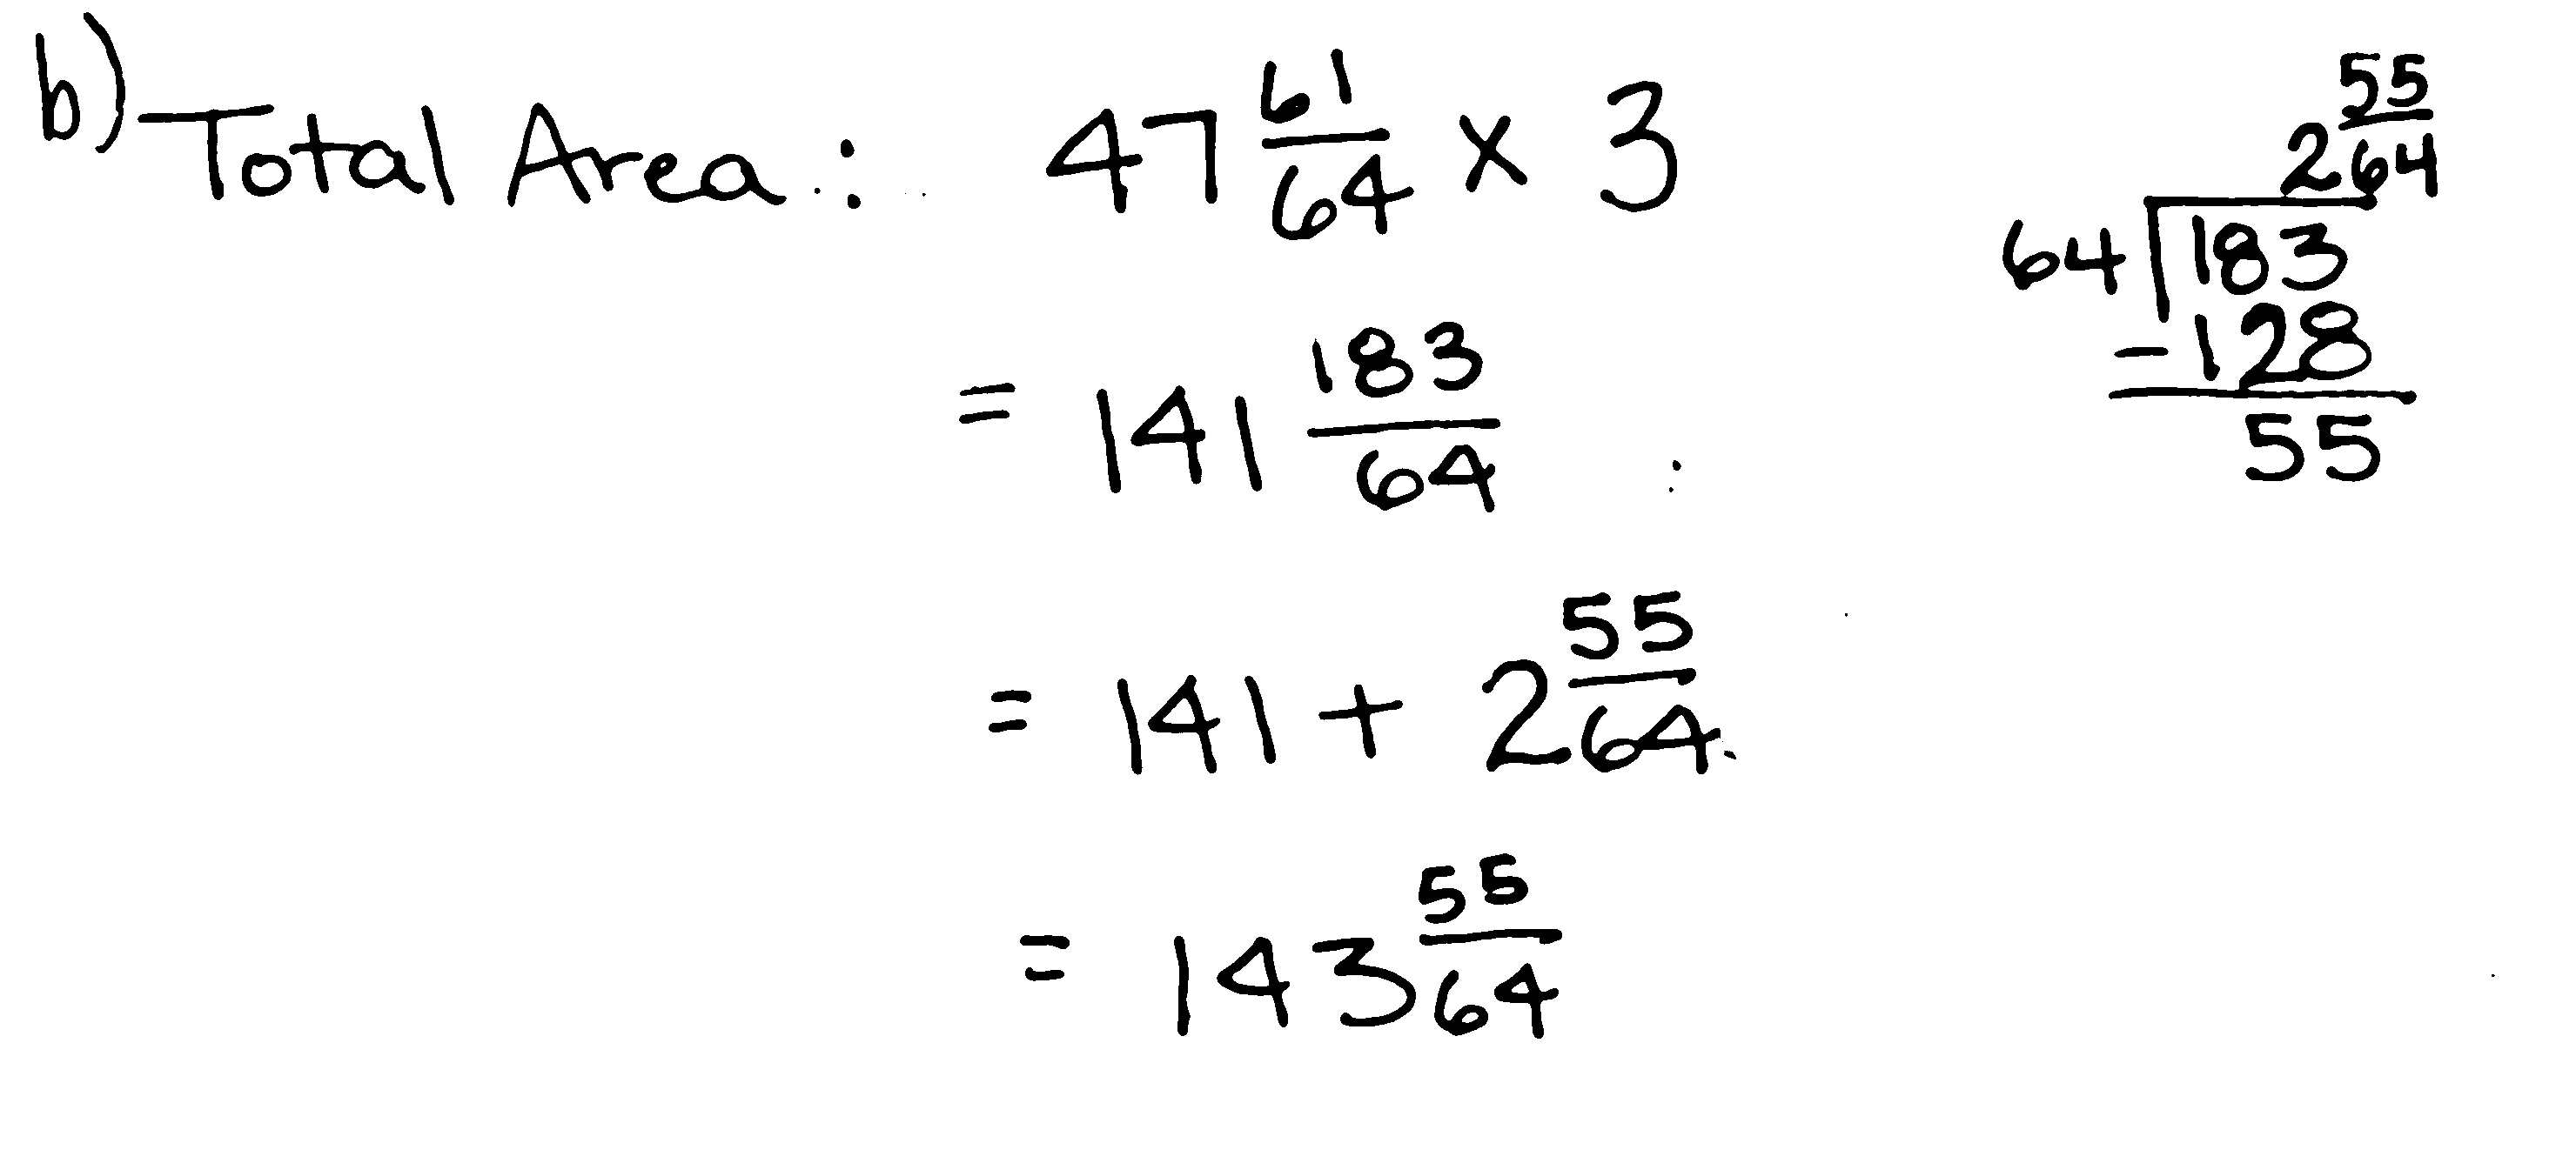 b) Total Area : 47 61/64 x 3
= 141 183/64
= 141 + 2 55/64
= 143 55/64
2 55/64
64 183
- 128
55